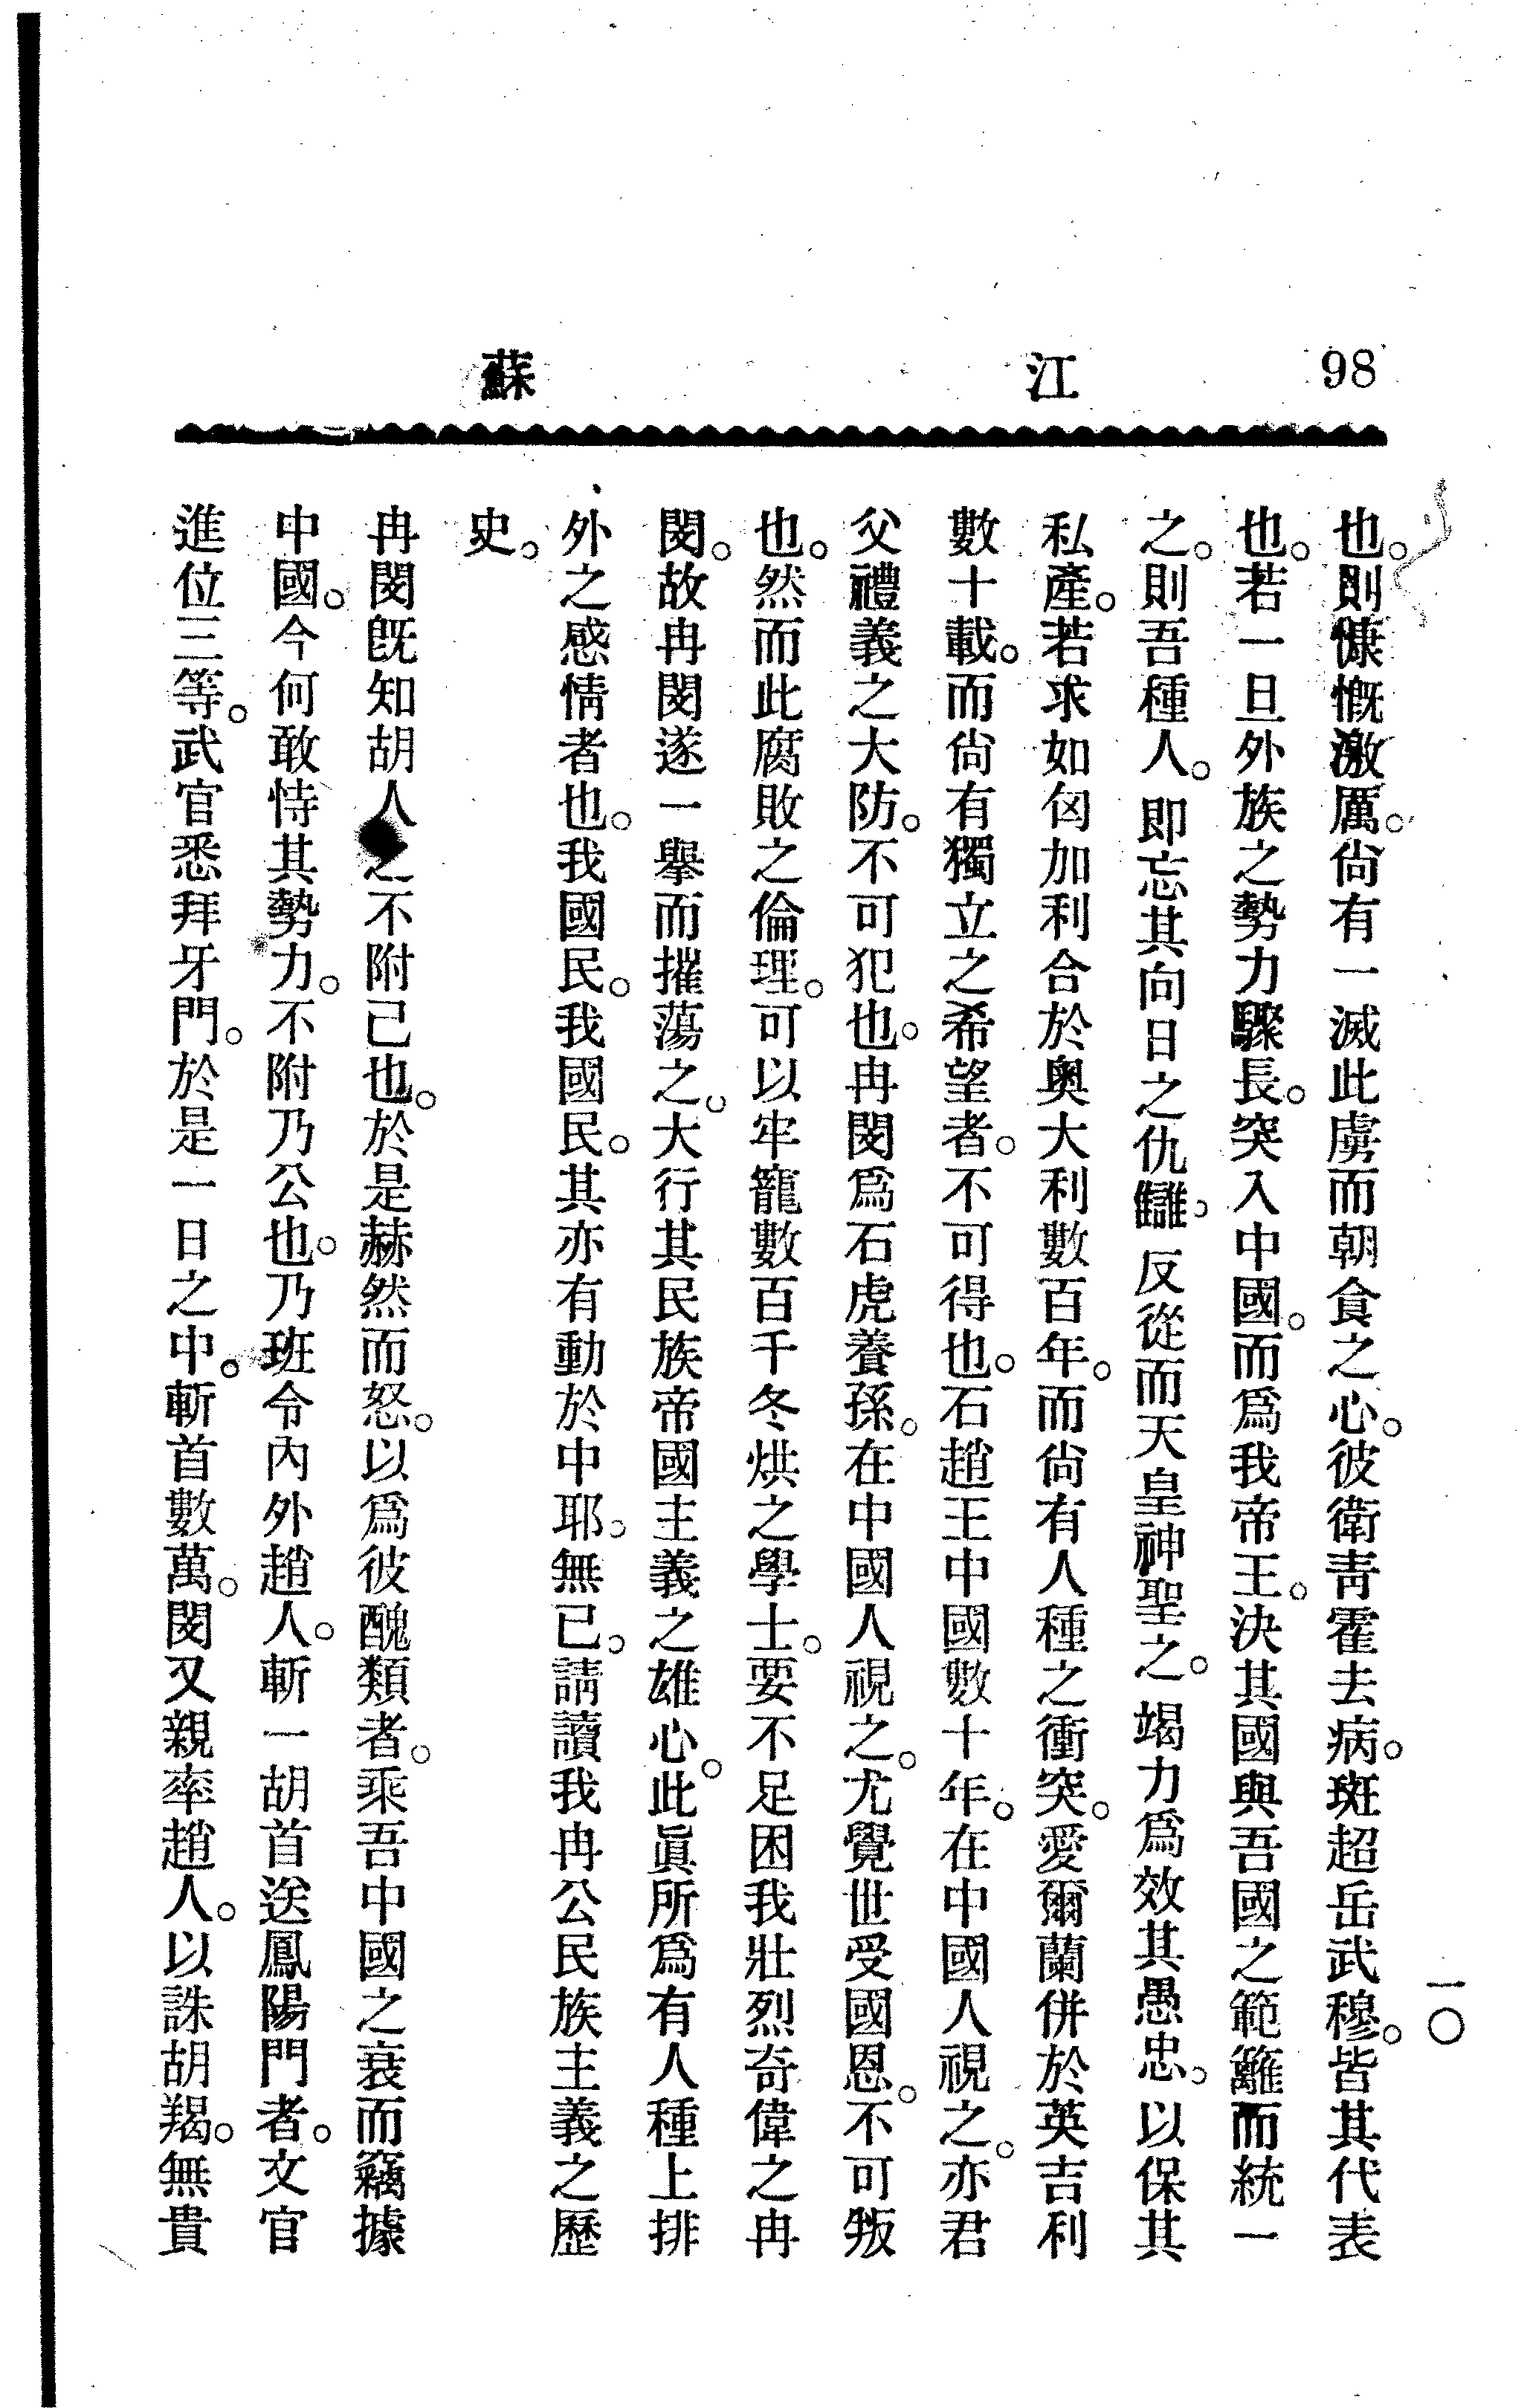 98
江蘇
一〇
也。則慷慨激厲。尙有一滅此虜而朝食之心。彼衛靑霍去病。斑超岳武穆。皆其代表
也。若一旦外族之勢力驟長。突入中國。而爲我帝王。決其國與吾國之範籬而統一
之。則吾種人。卽忘其向日之仇讎。反從而天皇神聖之。竭力爲效其愚忠。以保其
私產。若求如匈加利合於奥大利數百年。而尙有人種之衝突。愛爾蘭併於英吉利
數十載。而尙有獨立之希望者。不可得也。石趙王中國數十年。在中國人視之。亦君
父禮義之大防。不可犯也。冉閔爲石虎養孫。在中國人視之。尤覺世受國恩。不可叛
也。然而此腐敗之倫理。可以牢籠數百千冬烘之學士。要不足困我壯烈奇偉之冉
閔。故冉閔遂一擧而摧蕩之。大行其民族帝國主義之雄心。此眞所爲有人種上排
外之感情者也。我國民。我國民。其亦有動於中耶。無已。請讀我冉公民族主義之歷
史。
冉閔旣知胡人之不附己也。於是赫然而怒。以爲彼醜類者。乘吾中國之衰而竊據
中國。今何敢恃其勢力。不附乃公也。乃班令內外趙人。斬一胡首送鳳陽門者。文官
進位三等。武官悉拜牙門。於是一日之中。斬首數萬。閔又親率趙人。以誅胡羯。無貴